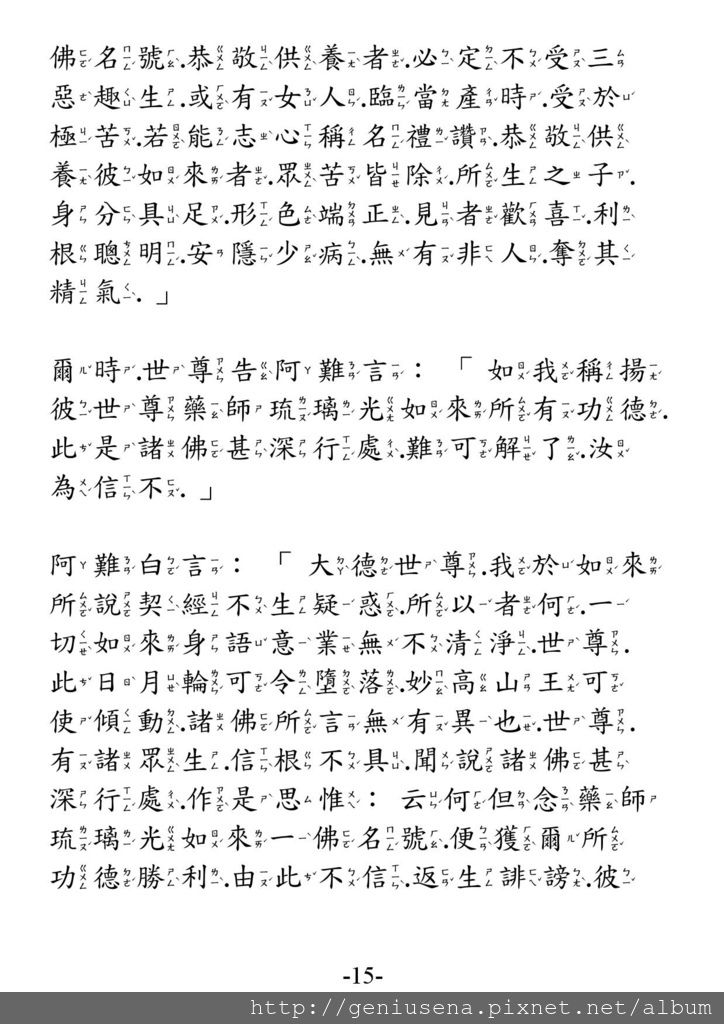 佛名號.恭敬供養者.必定不受三
惡趣生.或有女人.臨當產時.受於
極苦.若能志心稱名禮讚.恭敬供
養彼如來者.眾苦皆除.所生之子.
身分具足.形色端正.見者歡喜.利
根聰明.安隱少病.無有非人.奪其
精氣.」
爾時.世尊告阿難言：「如我稱揚
彼世尊藥師琉璃光如來所有功德.
此是諸佛甚深行處.難可解了.汝
為信不.」
阿難白言：「大德世尊.我於如來
所說契經不生疑惑.所以者何.一
切如來身語意業無不清淨.世尊.
此日月輪可令墮落.妙高山王可
使傾動.諸佛所言無有異也.世尊.
有諸眾生.信根不具.聞說諸佛甚
深行處.作是思惟：云何但念藥師
琉璃光如來一佛名號.便獲爾所
功德勝利.由此不信.返生誹謗.彼
-15-
http://geniusena.pixnet.net/album